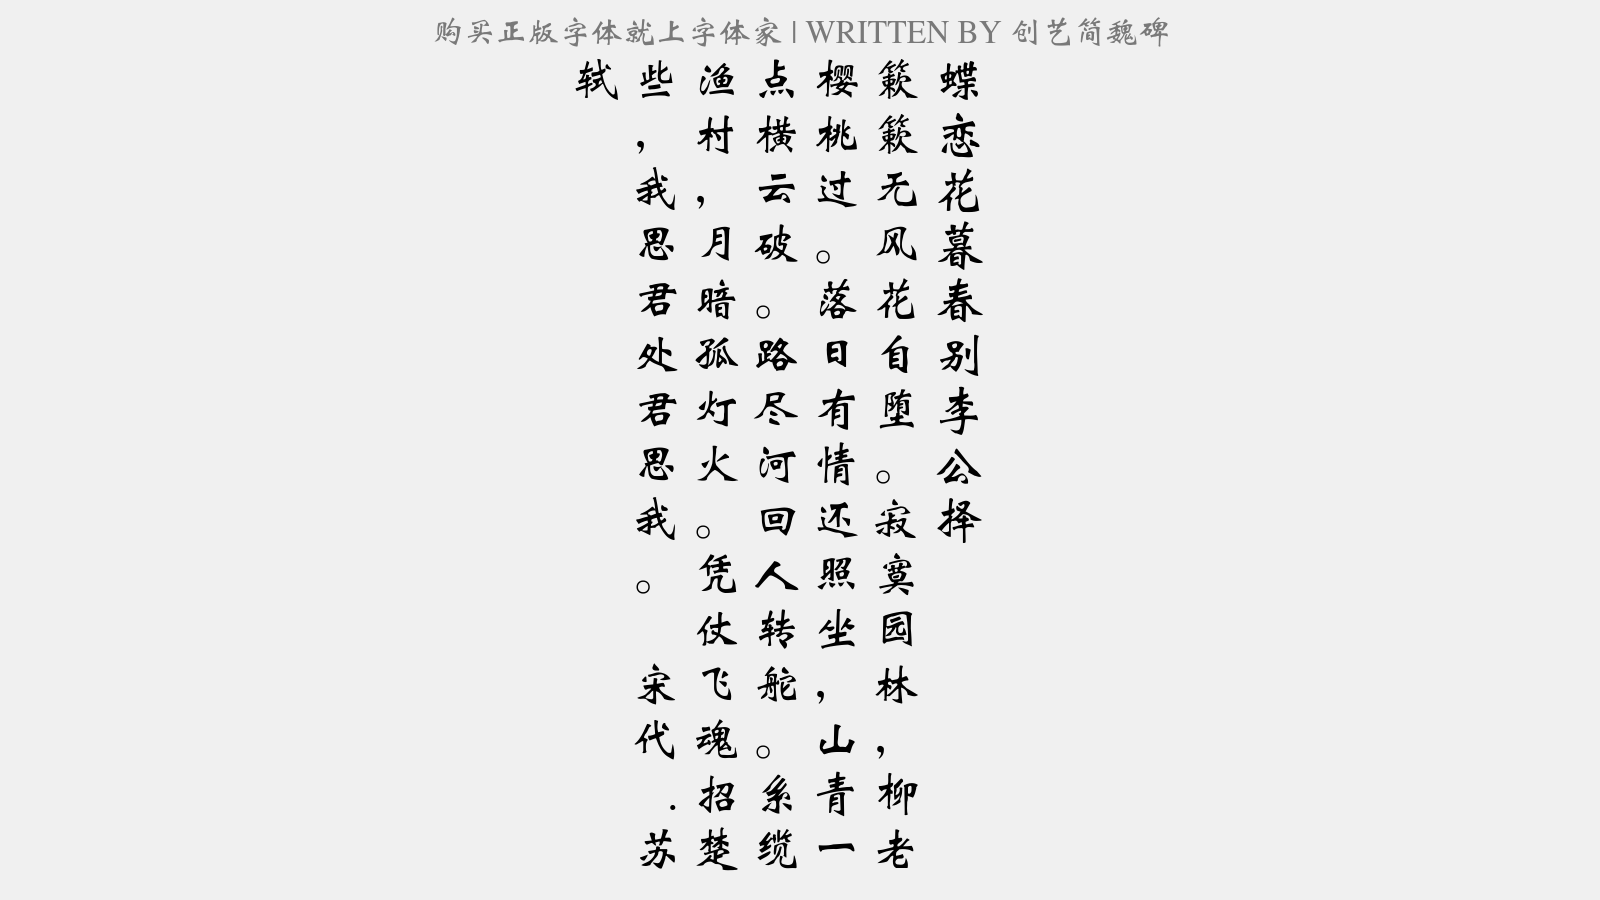 购买正版字体就上字体家 | WRITTEN BY 创艺简魏碑
蝶恋花暮春别李公择
簌簌无风花自堕。寂寞园林，柳老
樱桃过。落日有情还照坐，山青一
点横云破。路尽河回人转舵。系缆
渔村，月暗孤灯火。凭仗飞魂招楚
些，我思君处君思我。 宋代.苏
轼